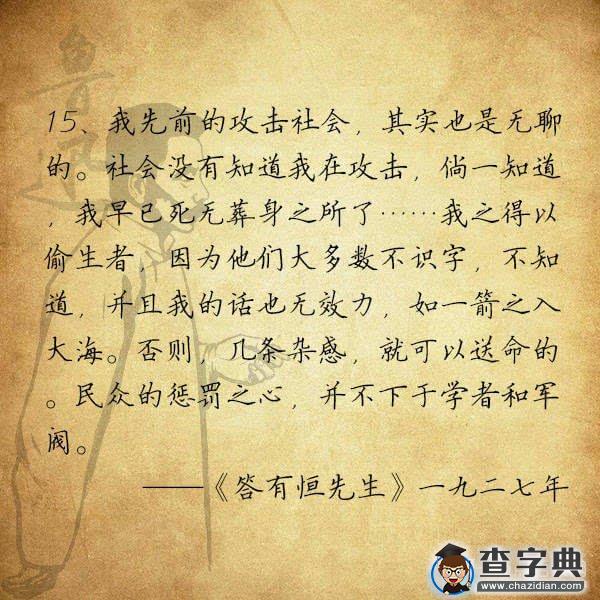 鲁迅
15、我先前的攻击社会，其实也是无聊
的。社会没有知道我在攻击，倘一知道
，我早已死无葬身之所了……我之得以
偷生者，因为他们大多数不识字，不知
道，并且我的话也无效力，如一箭之入
大海。否则，几条杂感，就可以送命的
。民众的惩罚之心，并不下于学者和军
阀。
——《答有恒先生》一九二七年
查字典
www.chazidian.com